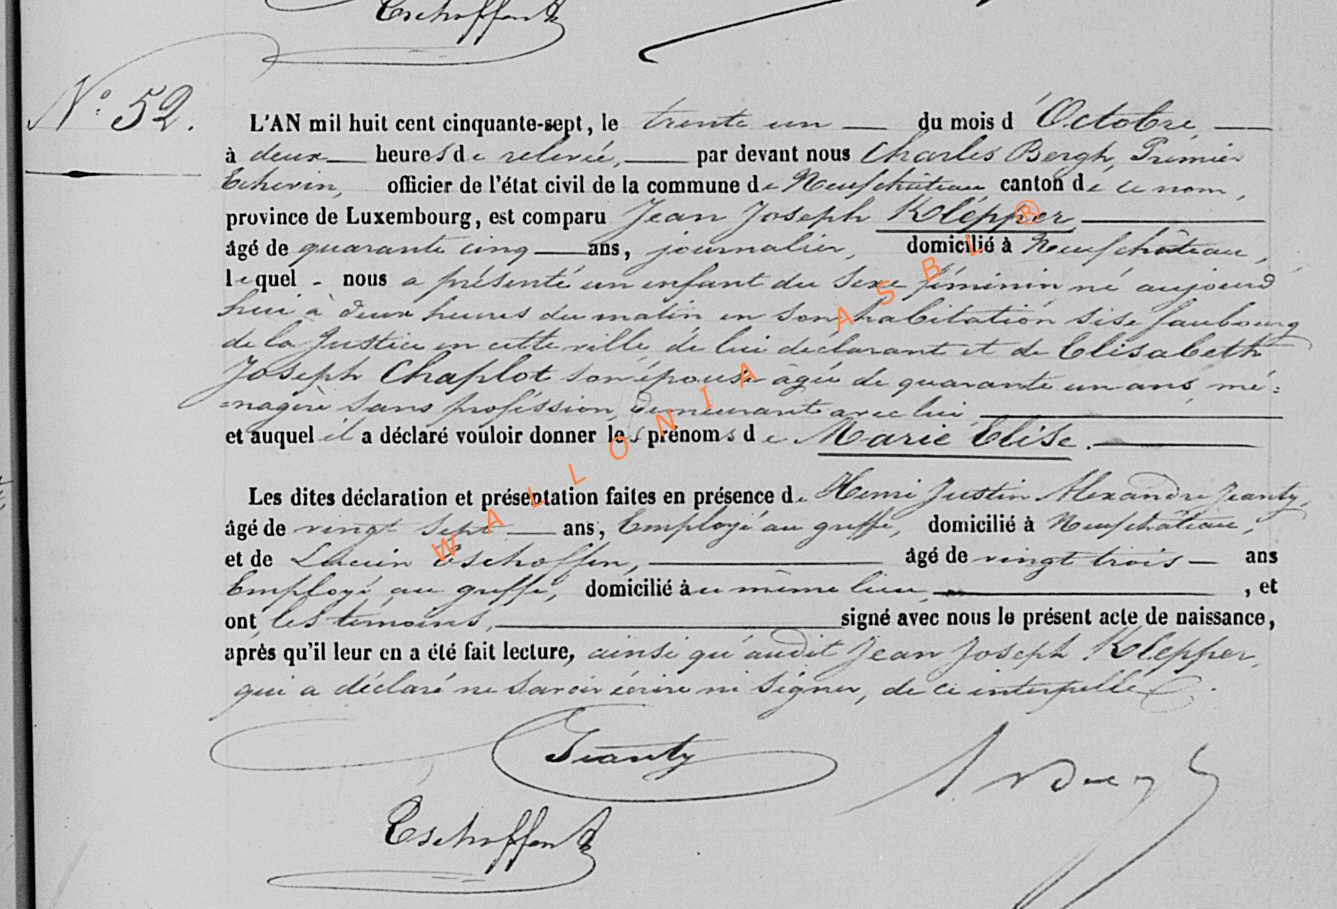 Eschoffen
N° 52.
L'AN mil huit cent cinquante-sept, le trente un du mois d'Octobre,
à deux heures de relevée, par devant nous Charles Bergh, Premier
Echevin, officier de l'état civil de la commune de Neufchâteau canton de ce nom,
province de Luxembourg, est comparu Jean Joseph Klépper
âgé de quarante cinq ans, journalier, domicilié à Neufchâteau,
lequel nous a présenté un enfant du sexe féminin né aujourd
hui à deux heures du matin en son habitation sise faubourg
de la Justice en cette ville, de lui déclarant et de Elisabeth
Joseph Chaplot son épouse âgée de quarante un ans, mé=
=nagère sans proféssion, demeurant avec lui
et auquel il a déclaré vouloir donner les prénoms de Marie Elise.
Les dites déclaration et présentation faites en présence de Henri Justin Alexandre Jeanty,
âgé de vingt sept ans, Employé au greffe, domicilié à Neufchâteau,
et de Lucien Eschoffen, âgé de vingt trois ans
Employé au greffe, domicilié au même lieu, , et
ont les témoins, signé avec nous le présent acte de naissance,
après qu'il leur en a été fait lecture, ainsi qu'audit Jean Joseph Klépper,
qui a déclaré ne savoir écrire ni signer, de ce interpellé.
Jeanty
Eschoffen
WALLONIA ASBL ®